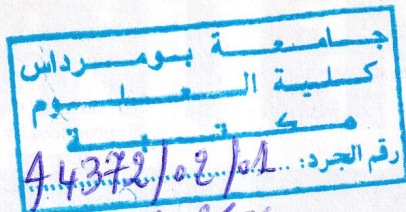 جامعة بومرداس
كلية العلوم
مكتبة
رقم الجرد: 14372/02/01